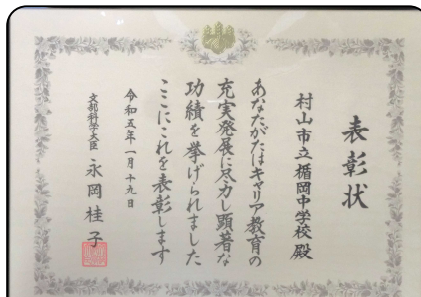 表彰状
村山市立楯岡中学校殿
あなたがたはキャリア教育の
充実発展に尽力し顕著な
功績を挙げられました
ここにこれを表彰します
令和五年一月十九日
文部科学大臣 永岡桂子